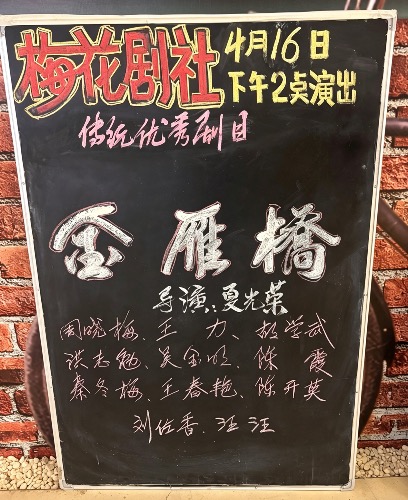 梅花剧社
4月16日
下午2点演出
传统优秀剧目
金雁橋
导演:夏光荣
周晓梅、王 力、胡学武
洪志勉、吴金明、陈 霞
秦冬梅、王春艳、陈开英
刘佐香、汪汪